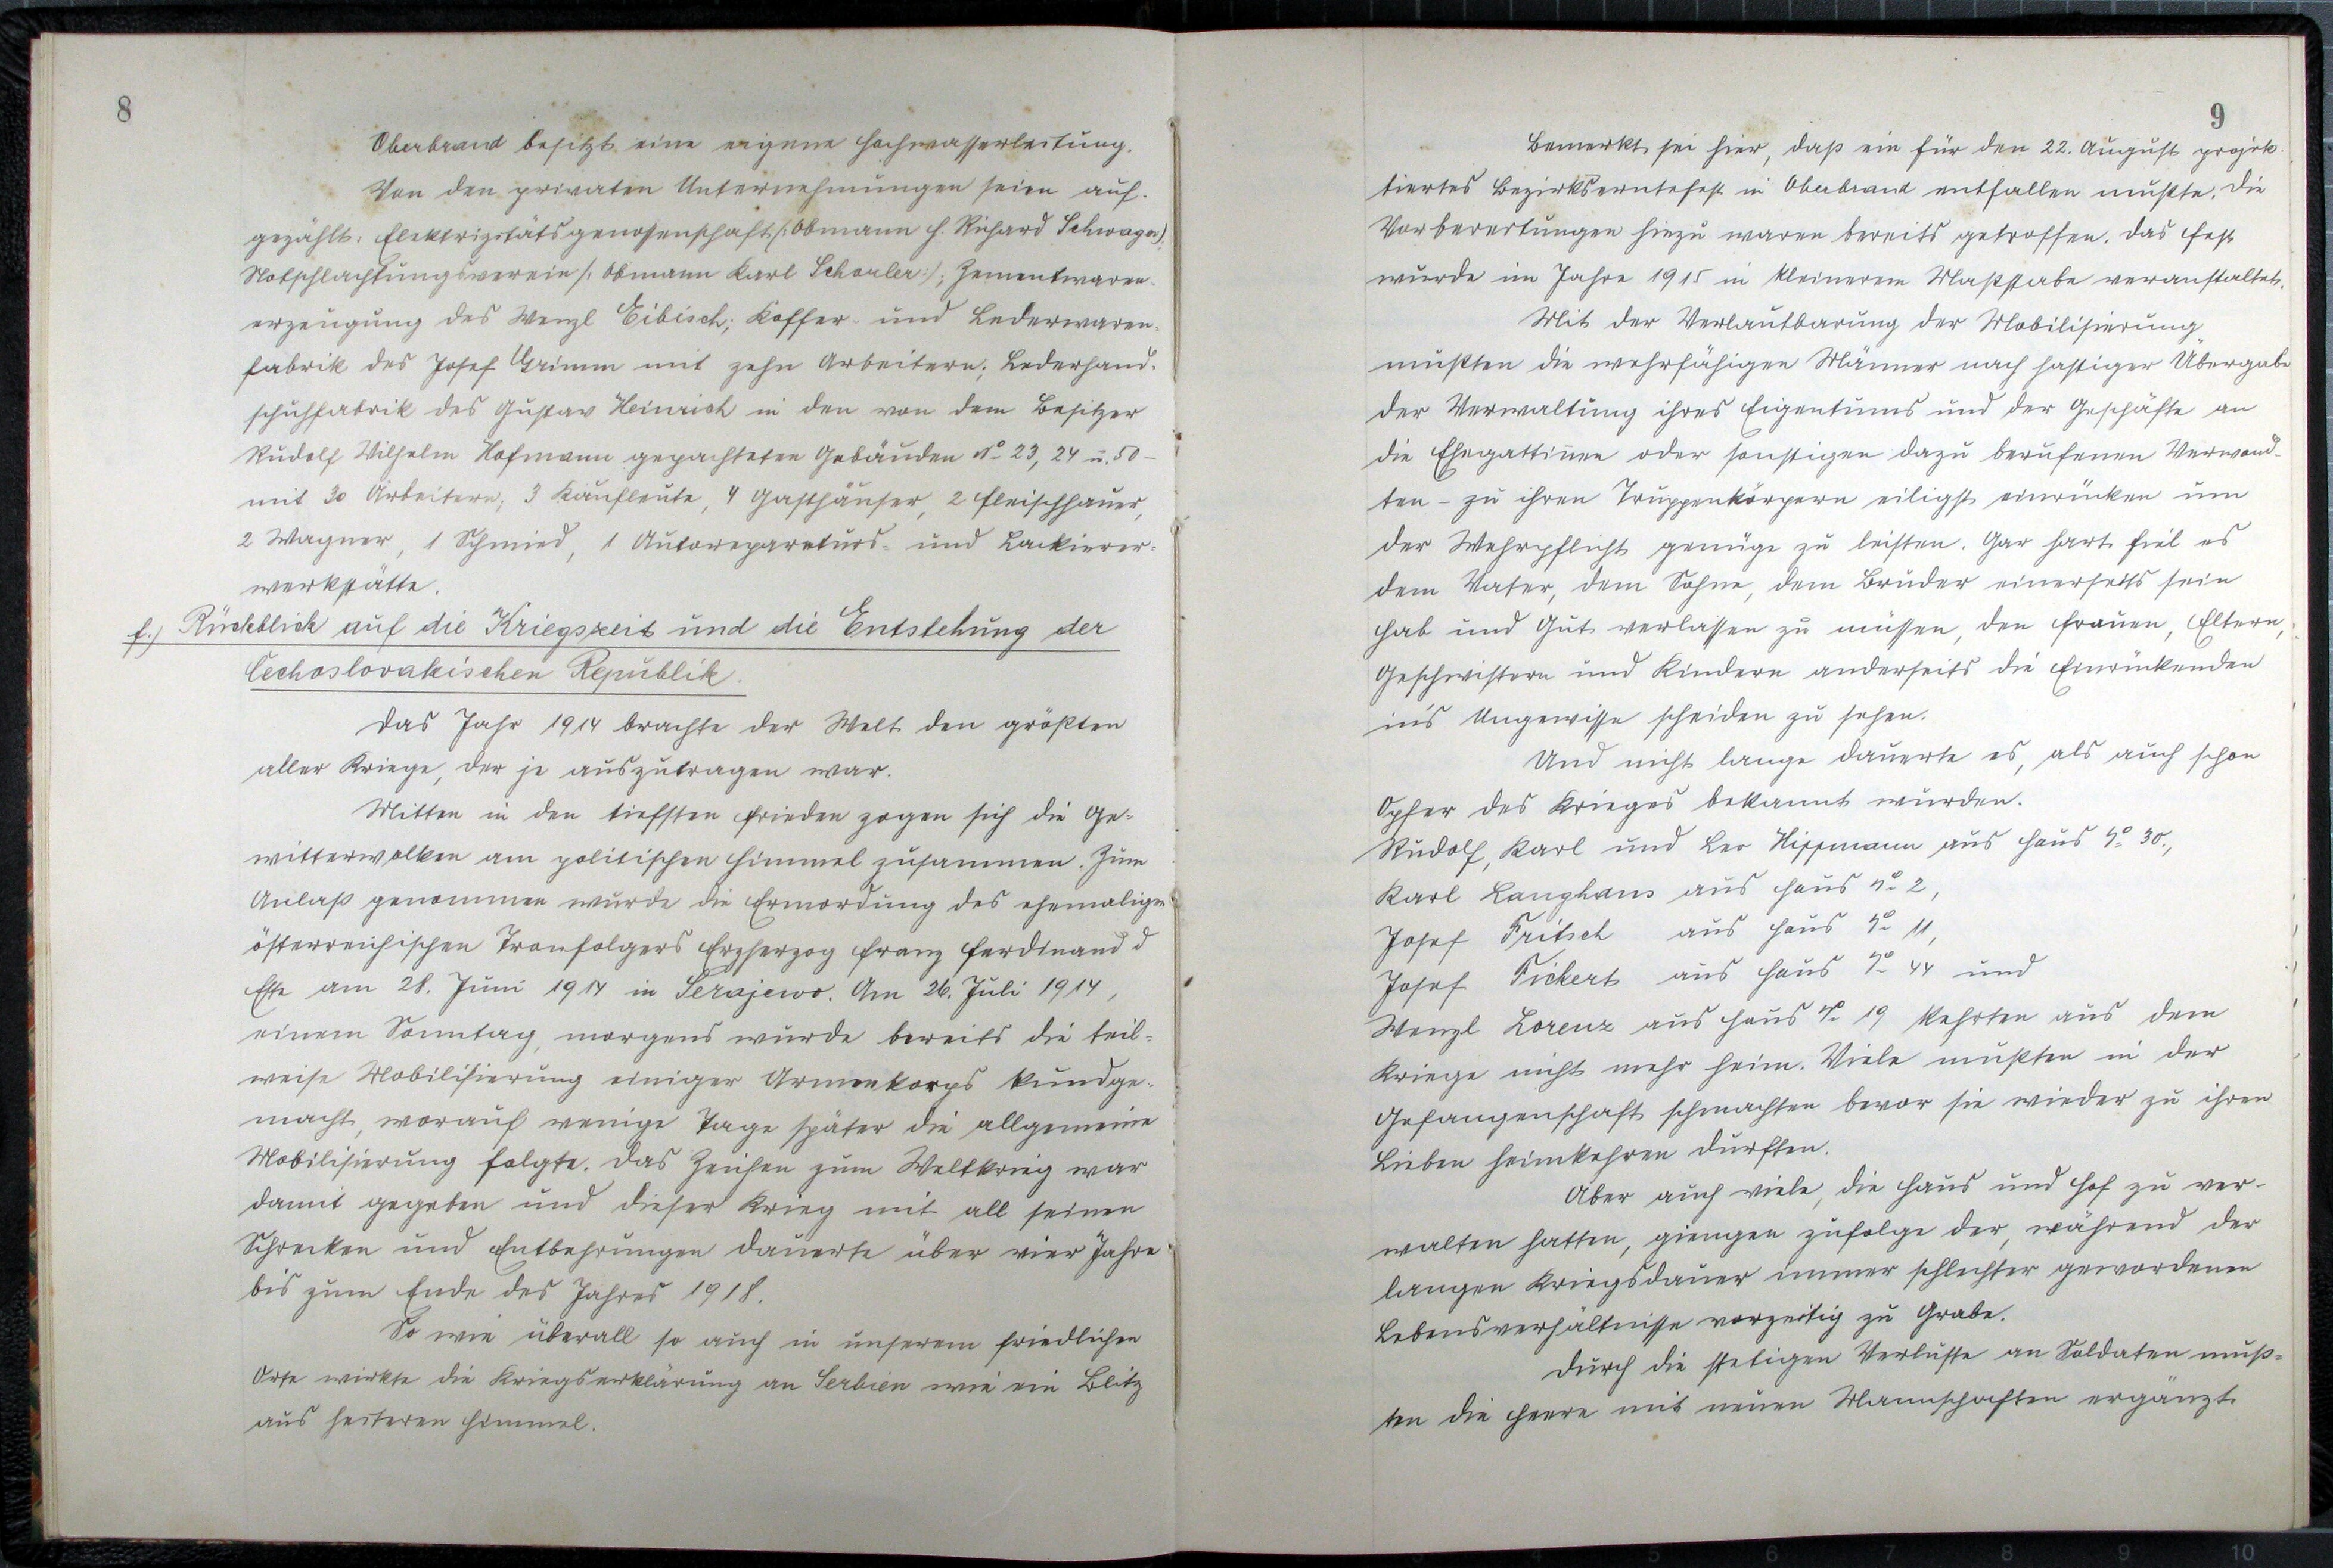 8
Oberbrand besitzt eine eigene Hochwasserleitung.
Von den privaten Unternehmungen seien auf-
gezählt: Elektrizitätsgenossenschaft /:Obmann H. Richard Schwager),
Notschlachtungsverein /: Obmann Karl Scharler:/; Zementwaren-
erzeugung des Wenzl Eibisch; Koffer- und Lederwaren-
fabrik des Josef Grimm mit zehn Arbeitern; Lederhand-
schuhfabrik des Gustav Heinrich in den von dem Besitzer
Rudolf Wilhelm Hofmann gepachteten Gebäuden No 23, 24 u. 50 -
mit 30 Arbeitern; 3 Kaufleute, 4 Gasthäuser, 2 Fleischhauer,
2 Wagner, 1 Schmied, 1 Autoreparaturs- und Lackierer-
werkstätte.
f.) Rückblick auf die Kriegszeit und die Entstehung der
Čechoslovakischen Republik.
Das Jahr 1914 brachte der Welt den größten
aller Kriege, der je auszutragen war.
Mitten in den tiefsten Frieden zogen sich die Ge-
witterwolken am politischen Himmel zusammen. Zum
Anlaß genommen wurde die Ermordung des ehemaligen
österreichischen Tronfolgers Erzherzog Franz Ferdinand d
Este am 28. Juni 1914 in Serajewo. Am 26. Juli 1914,
einem Sonntag, morgens wurde bereits die teil-
weise Mobilisierung einiger Armeekorps kundge-
macht, worauf wenige Tage später die allgemeine
Mobilisierung folgte. Das Zeichen zum Weltkrieg war
damit gegeben und dieser Krieg mit all seinen
Schrecken und Entbehrungen dauerte über vier Jahre
bis zum Ende des Jahres 1918.
So wie überall so auch in unserem friedlichen
Orte wirkte die Kriegserklärung an Serbien wie ein Blitz
aus heiteren Himmel.
9
Bemerkt sei hier, daß ein für den 22. August projek-
tiertes Bezirkserntefest in Oberbrand entfallen mußte. Die
Vorbereitungen hiezu waren bereits getroffen. Das Fest
wurde im Jahre 1915 in kleinerem Maßstabe veranstaltet.
Mit der Verlautbarung der Mobilisierung
mußten die wehrfähigen Männer nach hastiger Übergabe
der Verwaltung ihres Eigentums und der Geschäfte an
die Ehegattinen oder sonstigen dazu berufenen Verwand-
ten - zu ihren Truppenkörpern eiligst einrücken um
der Wehrpflicht genüge zu leisten. Gar hart fiel es
dem Vater, dem Sohne, dem Bruder einerseits sein
Hab und Gut verlassen zu müssen, den Frauen, Eltern,
Geschwistern und Kindern anderseits die Einrückenden
in's Ungewisse scheiden zu sehen.
Und nicht lange dauerte es, als auch schon
Opfer des Krieges bekannt wurden.
Rudolf, Karl und Leo Hippmann aus Haus No 30.,
Karl Langhans aus Haus No 2,
Josef Fritsch aus Haus No 11,
Josef Fickert aus Haus No 44 und
Wenzl Lorenz aus Haus No 19 kehrten aus dem
Kriege nicht mehr heim. Viele mußten in der
Gefangenschaft schmachten bevor sie wieder zu ihren
Lieben heimkehren durften.
Aber auch viele, die Haus und Hof zu ver-
walten hatten, giengen zufolge der, während der
langen Kriegsdauer immer schlechter gewordenen
Lebensverhältnisse vorzeitig zu Grabe.
Durch die stetigen Verluste an Soldaten muß-
ten die Heere mit neuen Mannschaften ergänzt
3 4 5 6 7 8 9 10